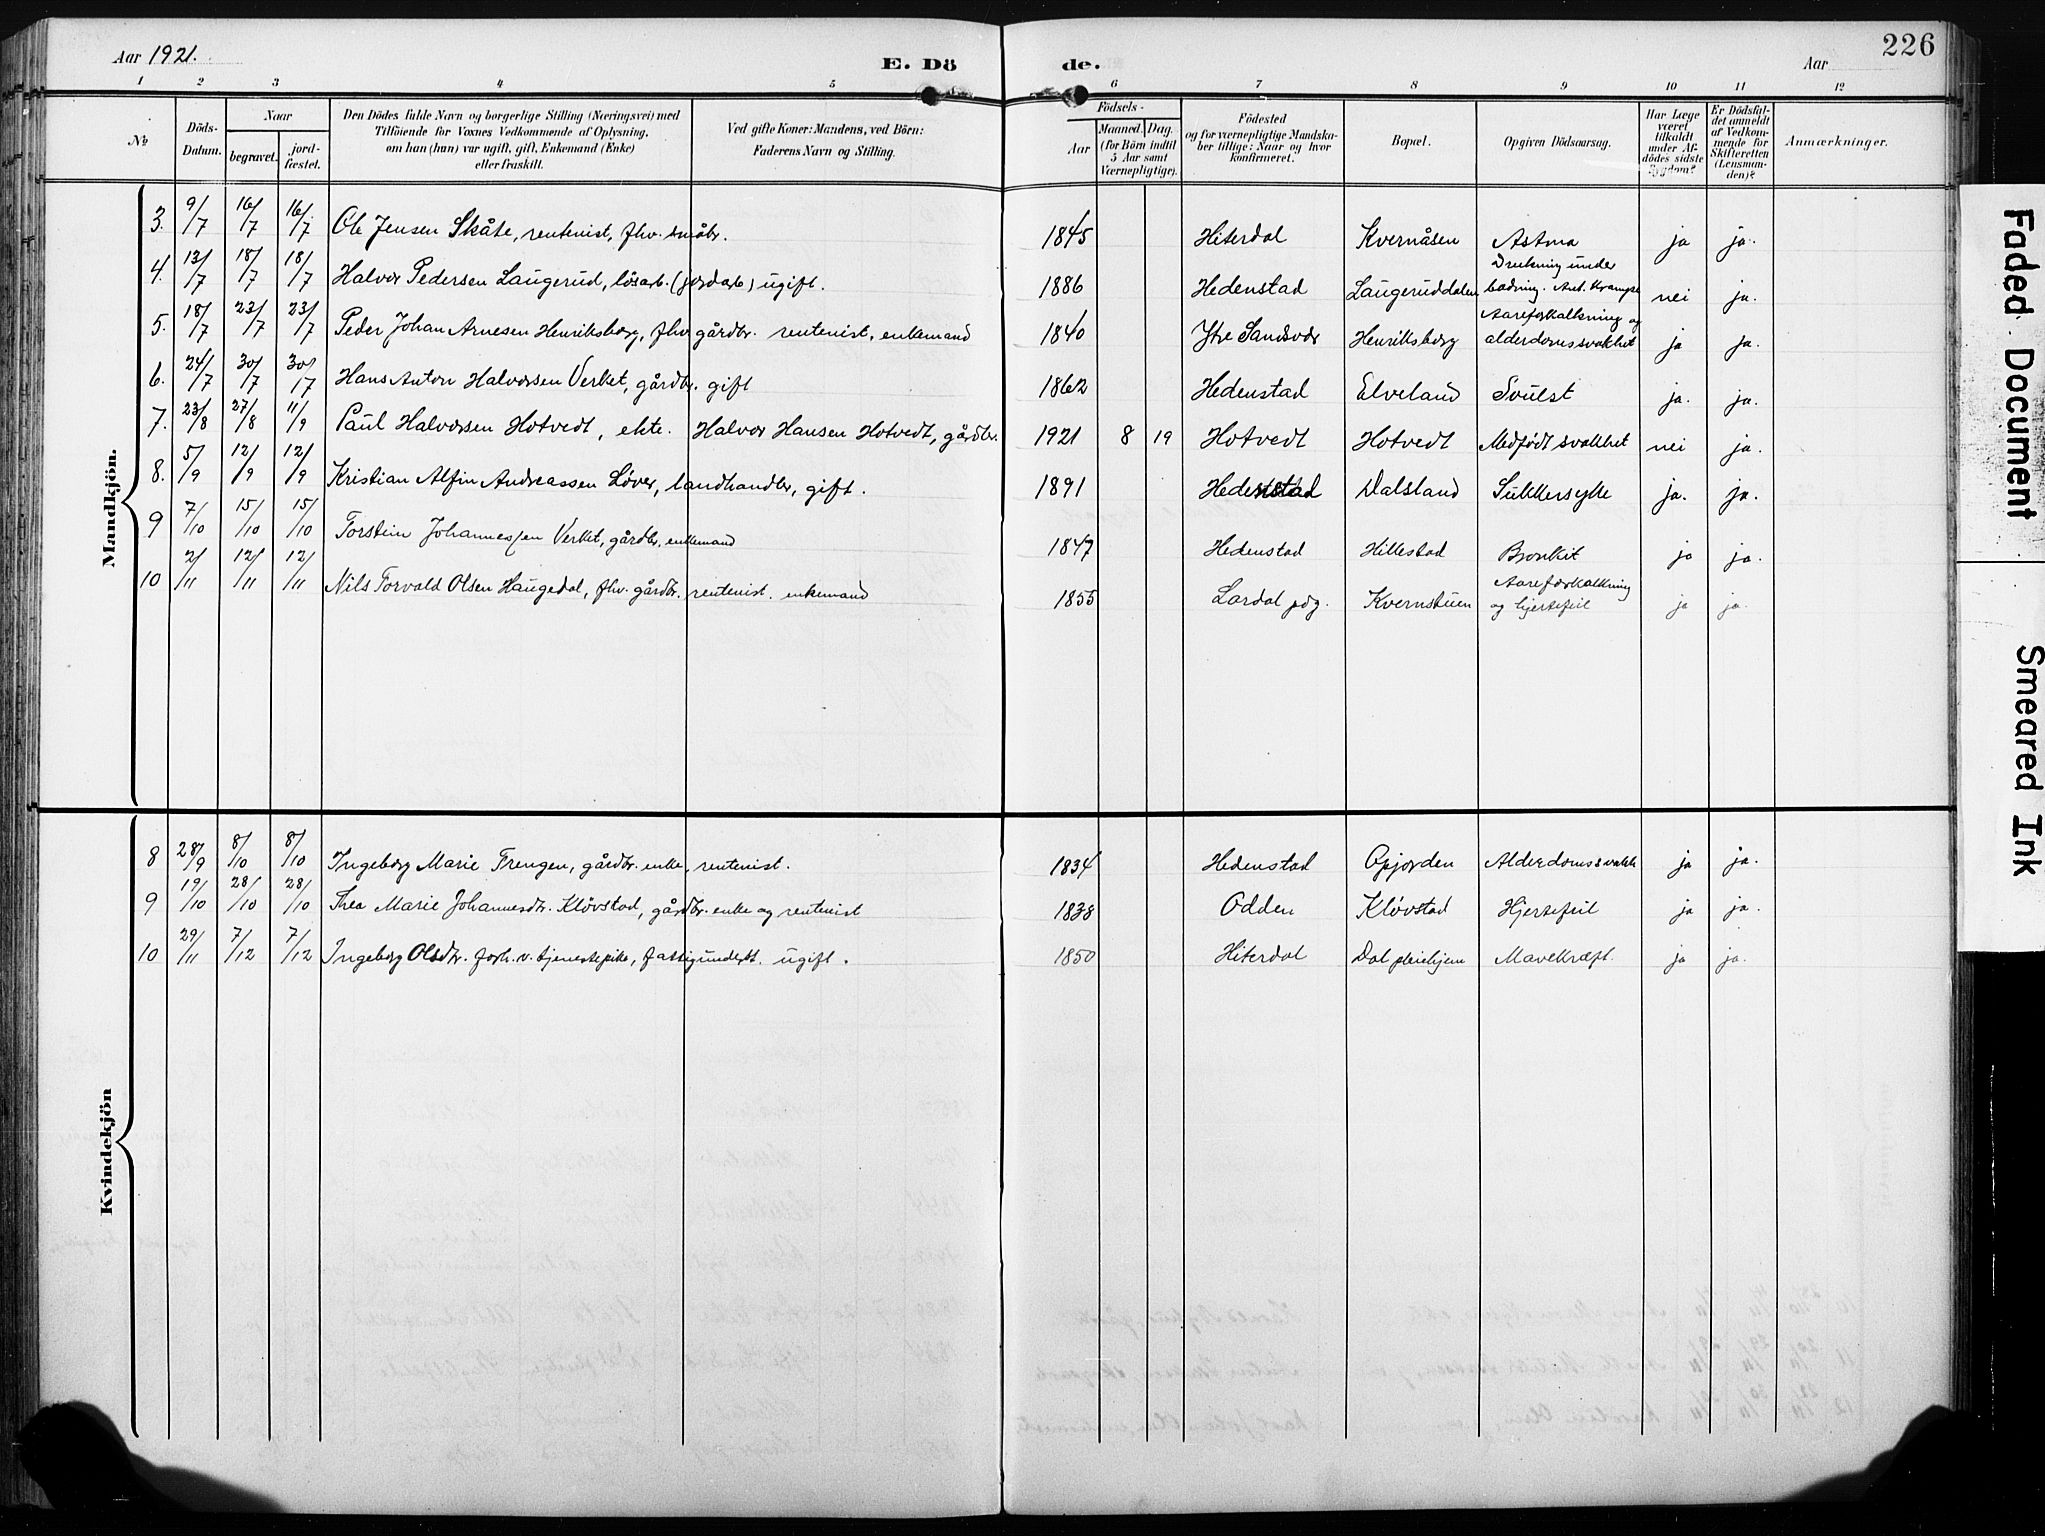 Aar 1921. E. Dö de. Aar 226
1 2 3 4 5 6 7 8 9 10 11 12
№
Döds-Datum.
Naar
begravet.
jord-fæstet.
Den Dödes fulde Navn og borgerlige Stilling (Næringsvei) med
Tilföiende for Voxnes Vedkommende af Oplysning,
om han (hun) var ugift, gift, Enkemand (Enke)
eller fraskilt.
Ved gifte Koner: Mandens, ved Börn:
Faderens Navn og Stilling.
Födsels-
Aar
Maaned. Dag.
(for Börn indtil
5 Aar samt
Værnepligtige).
Födested
og for værnepligtige Mandska-
ber tillige: Naar og hvor
konfirmeret.
Bopæl.
Opgiven Dödsaarsag.
Har Læge
været
tilkaldt
under Af-
dödes sidste
Sygdom?
Er Dödsfal-
det anmeldt
af Vedkom-
mende for
Skifteretten
(Lensman-
den)?
Anmærkninger.
Mandkjön.
3. 9/7 16/7 16/7 Ole Jensen Skåte, rentenist, fhv. småbr. 1845 Hiterdal Kvernåsen Astma ja ja.
4. 13/7 18/7 18/7 Halvor Pedersen Laugerud, lösarb. (jordarb) ugift. 1886 Hedenstad Laugeruddalen Drukning under badning. Ant. Krampe nei ja.
5. 18/7 23/7 23/7 Peder Johan Arnesen Henriksberg, fhv gårdbr. rentenist, enkemand 1840 Ytre Sandsvær Henriksberg Aareforkalkning og alderdomssvakhet ja ja.
6. 24/7 30/7 30/7 Hans Anton Halvorsen Verket, gårdbr. gift 1862 Hedenstad Elveland Svulst ja. ja.
7. 23/8 27/8 11/9 Paul Halvorsen Hotvedt, ekte. Halvor Hansen Hotvedt, gårdbr. 1921 8 19 Hotvedt Hotvedt Medfødt svakhet nei ja.
8. 5/9 12/9 12/9 Kristian Alfin Andreassen Löver, landhandler, gift. 1891 Hedenstad Dalsland Sukkersyke ja. ja.
9 7/10 15/10 15/10 Torstein Johannessen Verket, gårdbr, enkemand 1847 Hedenstad Hillestad Bronkit ja ja.
10 2/11 12/11 12/11 Nils Torvald Olsen Haugedal, fhv. gårdbr. rentenist. enkemand 1855 Lardal pdg. Kvernstuen Aareforkalkning og hjertefeil ja ja.
Kvindekjön
8 28/9 8/10 8/10 Ingeborg Marie Trengen, gårdbr. enke, rentenist. 1834 Hedenstad Opjorden Alderdomssvakh ja ja.
9 19/10 28/10 28/10 Thea Marie Johannesdtr. Klövstad, gårdbr. enke og rentenist 1838 Odden Klövstad Hjertefeil ja ja.
10 29/11 7/12 7/12 Ingeborg Olsdtr. forh. v. tjenestepike, fattigunderst. ugift. 1850 Hiterdal Dal pleiehjem Mavekræft. ja ja.
Faded Document
Smeared Ink